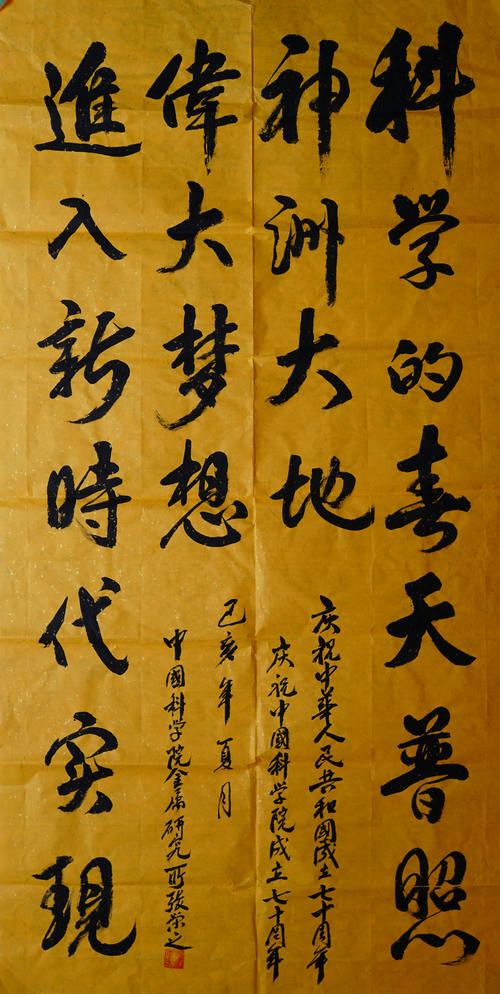 科学的春天普照
神洲大地
進入新時代实現
偉大梦想
庆祝中華人民共和國成立七十周年
庆祝中國科学院成立七十周年
己亥年 夏月
中國科学院金属研究所張荣之